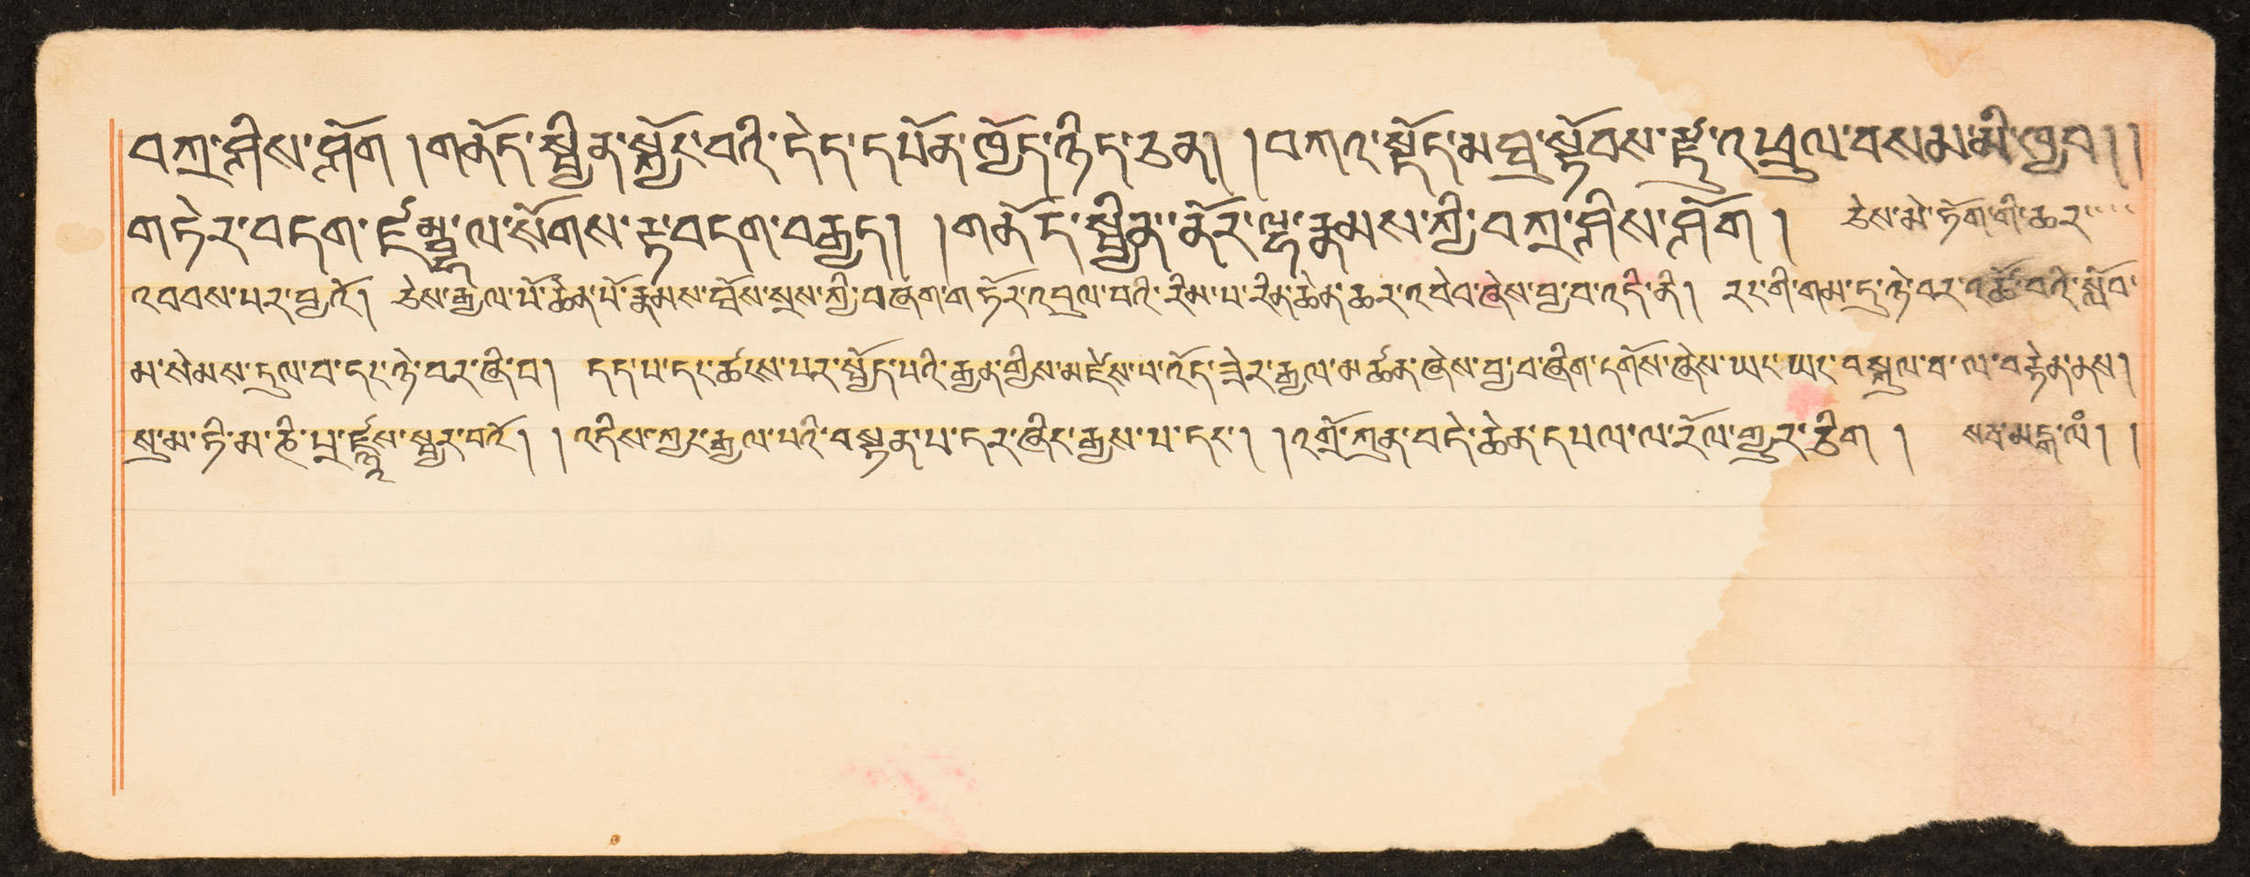 བཀྲ་ཤིས་ཤོག །གནོད་སྦྱིན་སྦྱོང་བའི་དེད་དཔོན་ཁྱོད་ཉིད་ཅན། །བཀའ་སྡོད་མཐུ་སྟོབས་རྫུ་འཕྲུལ་བསམ་མི་ཁྱབ། །
གཏེར་བདག་ཛམྦྷ་ལ་སོགས་རྟ་བདག་བརྒྱད། །གནོད་སྦྱིན་ནོར་ལྷ་རྣམས་ཀྱི་བཀྲ་ཤིས་ཤོག ། ཅེས་མེ་ཏོག་གི་ཆར་
འབབས་པར་བྱའོ། ཅེས་རྒྱལ་པོ་ཆེན་པོ་རྣམས་སྤོས་སྲས་ཀྱི་བཞག་གཏོར་འབུལ་བའི་རིམ་པ་རིན་ཆེན་ཆར་འབེབ་ཞེས་བྱ་བ་འདི་ནི། རང་གི་གམ་དུ་ཉེ་བར་འཚོ་བའི་སློབ་
མ་སེམས་དུལ་བ་དང་ཉེ་བར་ཞི་བ། དད་པ་དང་ཚངས་པར་སྤྱོད་པའི་རྒྱན་གྱིས་མཛེས་པ་འོད་ཟེར་རྒྱལ་མཚན་ཞེས་བྱ་བ་ཞིག་དགོས་ཞེས་ཡང་ཡང་བསྐུལ་བ་ལ་བརྟེན་ནས།
སུ་མ་ཏི་མ་ཎི་པྲ་ཛྙཱས་སྦྱར་བའོ། །འདིས་ཀྱང་རྒྱལ་བའི་བསྟན་པ་དར་ཞིང་རྒྱས་པ་དང་། །འགྲོ་ཀུན་བདེ་ཆེན་དཔལ་ལ་རོལ་གྱུར་ཅིག ། སརྦ་མངྒ་ལཾ། །